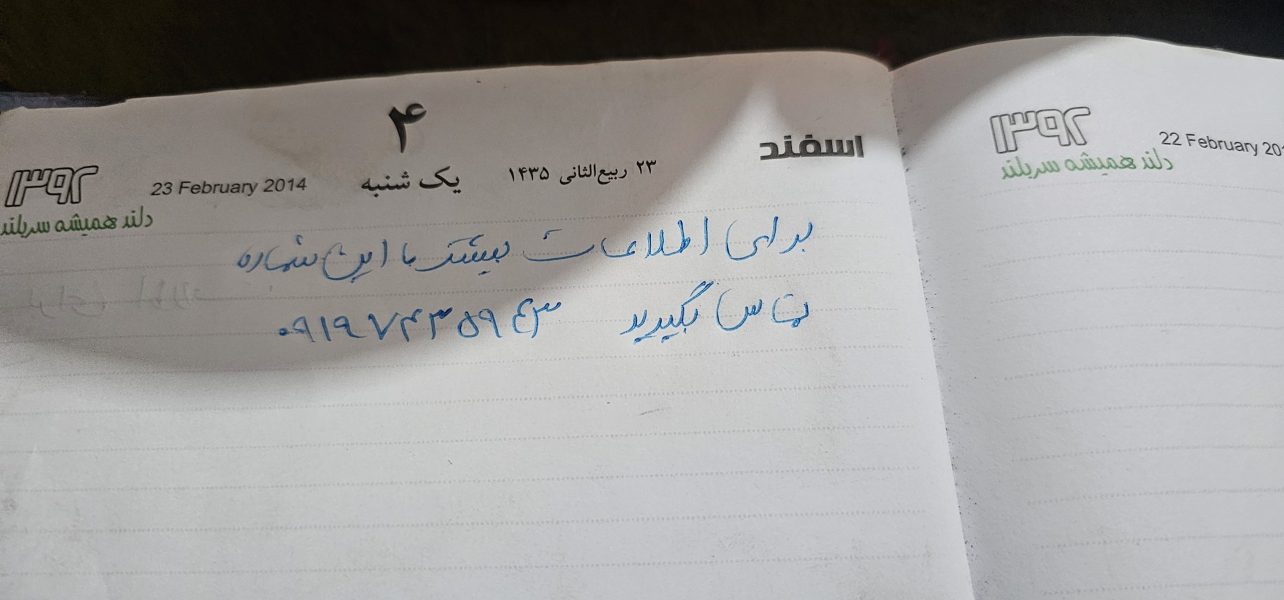 ۴
اسفند
۲۳ ربیع‌الثانی ۱۴۳۵
یک شنبه
23 February 2014
۱۳۹۲
دلند همیشه سربلند
برای اطلاعات بیشتر با این شماره
تماس بگیرید ۰۹۱۹۷۴۳۵۹۴۳
۱۳۹۲
22 February 201
دلند همیشه سربلند